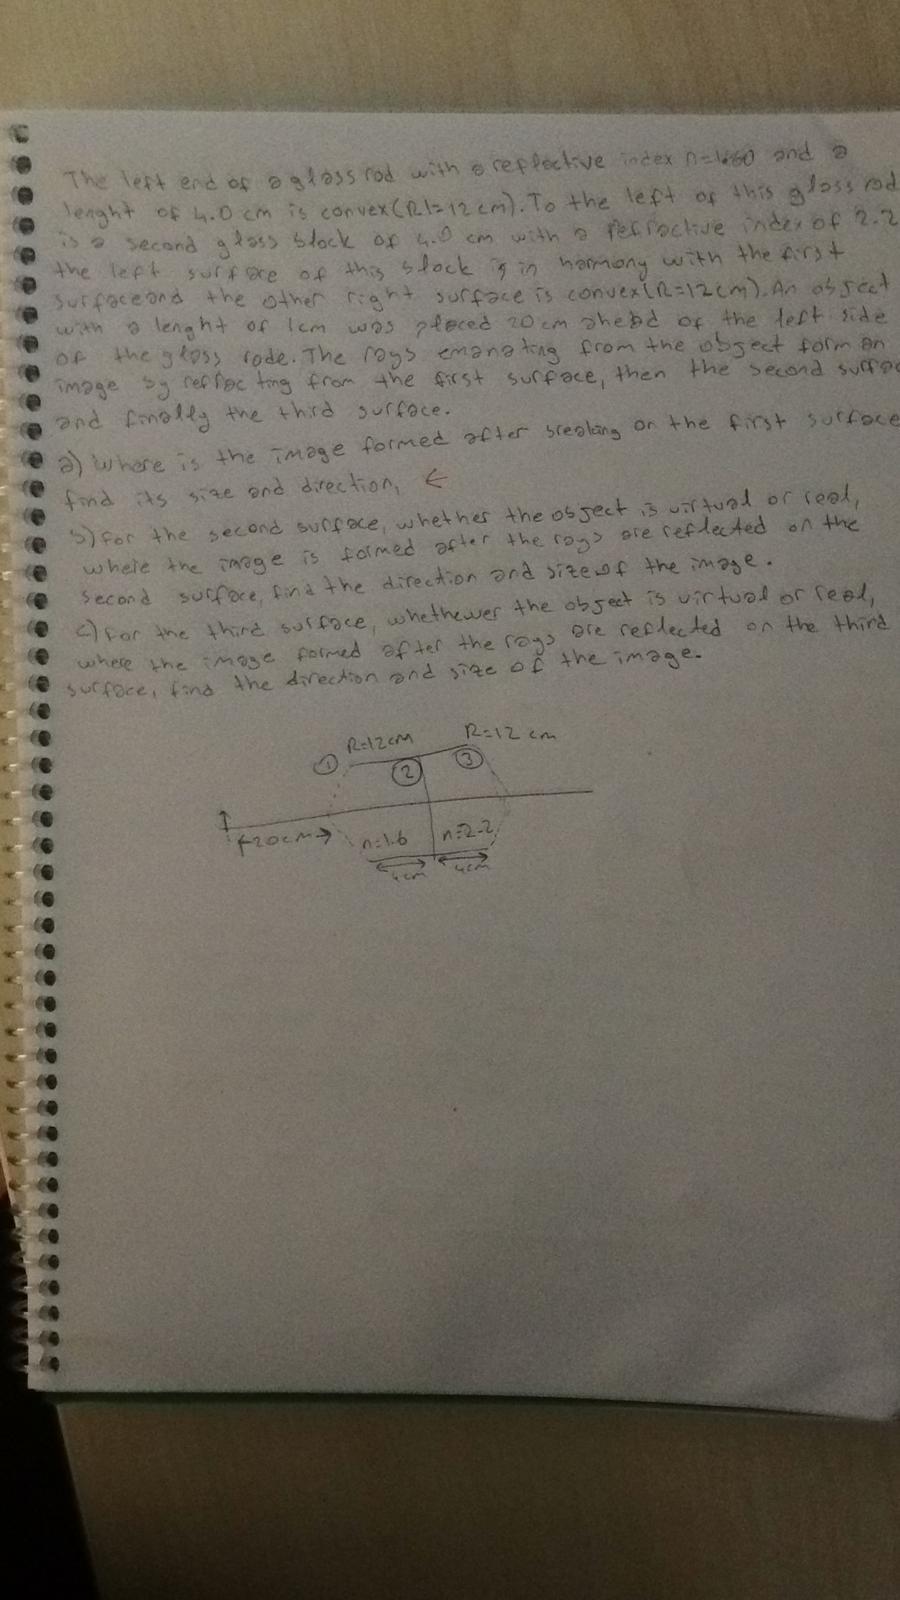 The left end of a glass rod with a reflective index n=1.60 and a
lenght of 4.0 cm is convex(R1=12cm). To the left of this glass rod
is a second glass block of 4.0 cm with a refractive index of 2.2
the left surface of this block is in harmony with the first
surface and the other right surface is convex(R=12cm). An object
with a lenght of 1cm was placed 20cm ahead of the left side
of the glass rode. The rays emanating from the object form an
image by reflecting from the first surface, then the second
and finally the third surface.
a) Where is the image formed after breaking on the first surface
find its size and direction. ←
b) For the second surface, whether the object is virtual or real,
where the image is formed after the rays are reflected on the
second surface, find the direction and size of the image.
c) For the third surface, whethewer the object is virtual or real,
where the image formed after the rays are reflected on the third
surface, find the direction and size of the image.
R=12cm R=12 cm
① ② ③
20cm n=1.6 n=2.2
4cm 4cm